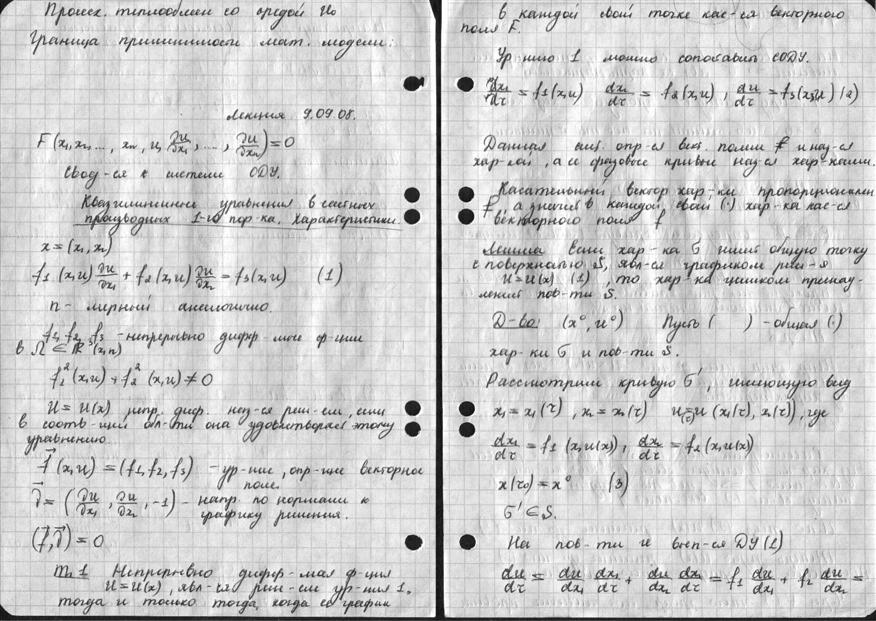 Происх. теплообмен со средой u₀
Граница применимости мат. модели:
Лекция 9.09.08.
F(x₁, x₂, ..., xₙ, u, ∂u/∂x₁, ..., ∂u/∂xₙ) = 0
Свод-ся к системе ОДУ.
Квазилинейные уравнения в частных
производных 1-го пор-ка. Характеристики.
x = (x₁, x₂)
f₁(x,u) ∂u/∂x₁ + f₂(x,u) ∂u/∂x₂ = f₃(x,u) (1)
n - мерный аналогично.
f₁, f₂, f₃ - непрерывно дифф-мые ф-ции
в Λ ∈ ℝ³(x,u)
f₁²(x,u) + f₂²(x,u) ≠ 0
u = u(x) непр. диф. наз-ся реш-ем, если
в соотв-щей обл-ти она удовлетворяет этому
уравнению.
f⃗(x,u) = (f₁, f₂, f₃) - ур-ние, опр-щие векторное
поле.
ν⃗ = (∂u/∂x₁, ∂u/∂x₂, -1) - напр. по нормали к
графику решения.
(f⃗, ν⃗) = 0
Т. 1 Непрерывно дифф-мая ф-ция
u = u(x), явл-ся реш-ем ур-ния 1,
тогда и только тогда, когда её график
в каждой своей точке кас-ся векторного
поля F.
Ур-нию 1 можно сопоставить СОДУ.
dx₁/dτ = f₁(x,u) dx₂/dτ = f₂(x,u), du/dτ = f₃(x,u) (2)
Данная сист. опр-ся вект. полем f и наз-ся
хар-кой, а её фазовые кривые наз-ся хар-ками.
Касательный вектор хар-ки пропорционален
f, а значит в каждой своей (·) хар-ка кас-ся
векторного поля f
Лемма Если хар-ка σ имеет общую точку
с поверхностью S, явл-ся графиком реш-я
u = u(x) (1), то хар-ка целиком принад-
лежит пов-ти S.
Д-во: (x⁰, u⁰) Пусть ( ) - общая (·)
хар-ки σ и пов-ти S.
Рассмотрим кривую σ', имеющую вид
x₁ = x₁(τ), x₂ = x₂(τ) u(τ) = u(x₁(τ), x₂(τ)), где
dx₁/dτ = f₁(x,u(x)), dx₂/dτ = f₂(x,u(x))
x(τ₀) = x⁰ (3)
σ' ∈ S.
На пов-ти и вып-ся ДУ(1)
du/dτ = du/dx₁ dx₁/dτ + du/dx₂ dx₂/dτ = f₁ du/dx₁ + f₂ du/dx₂ =